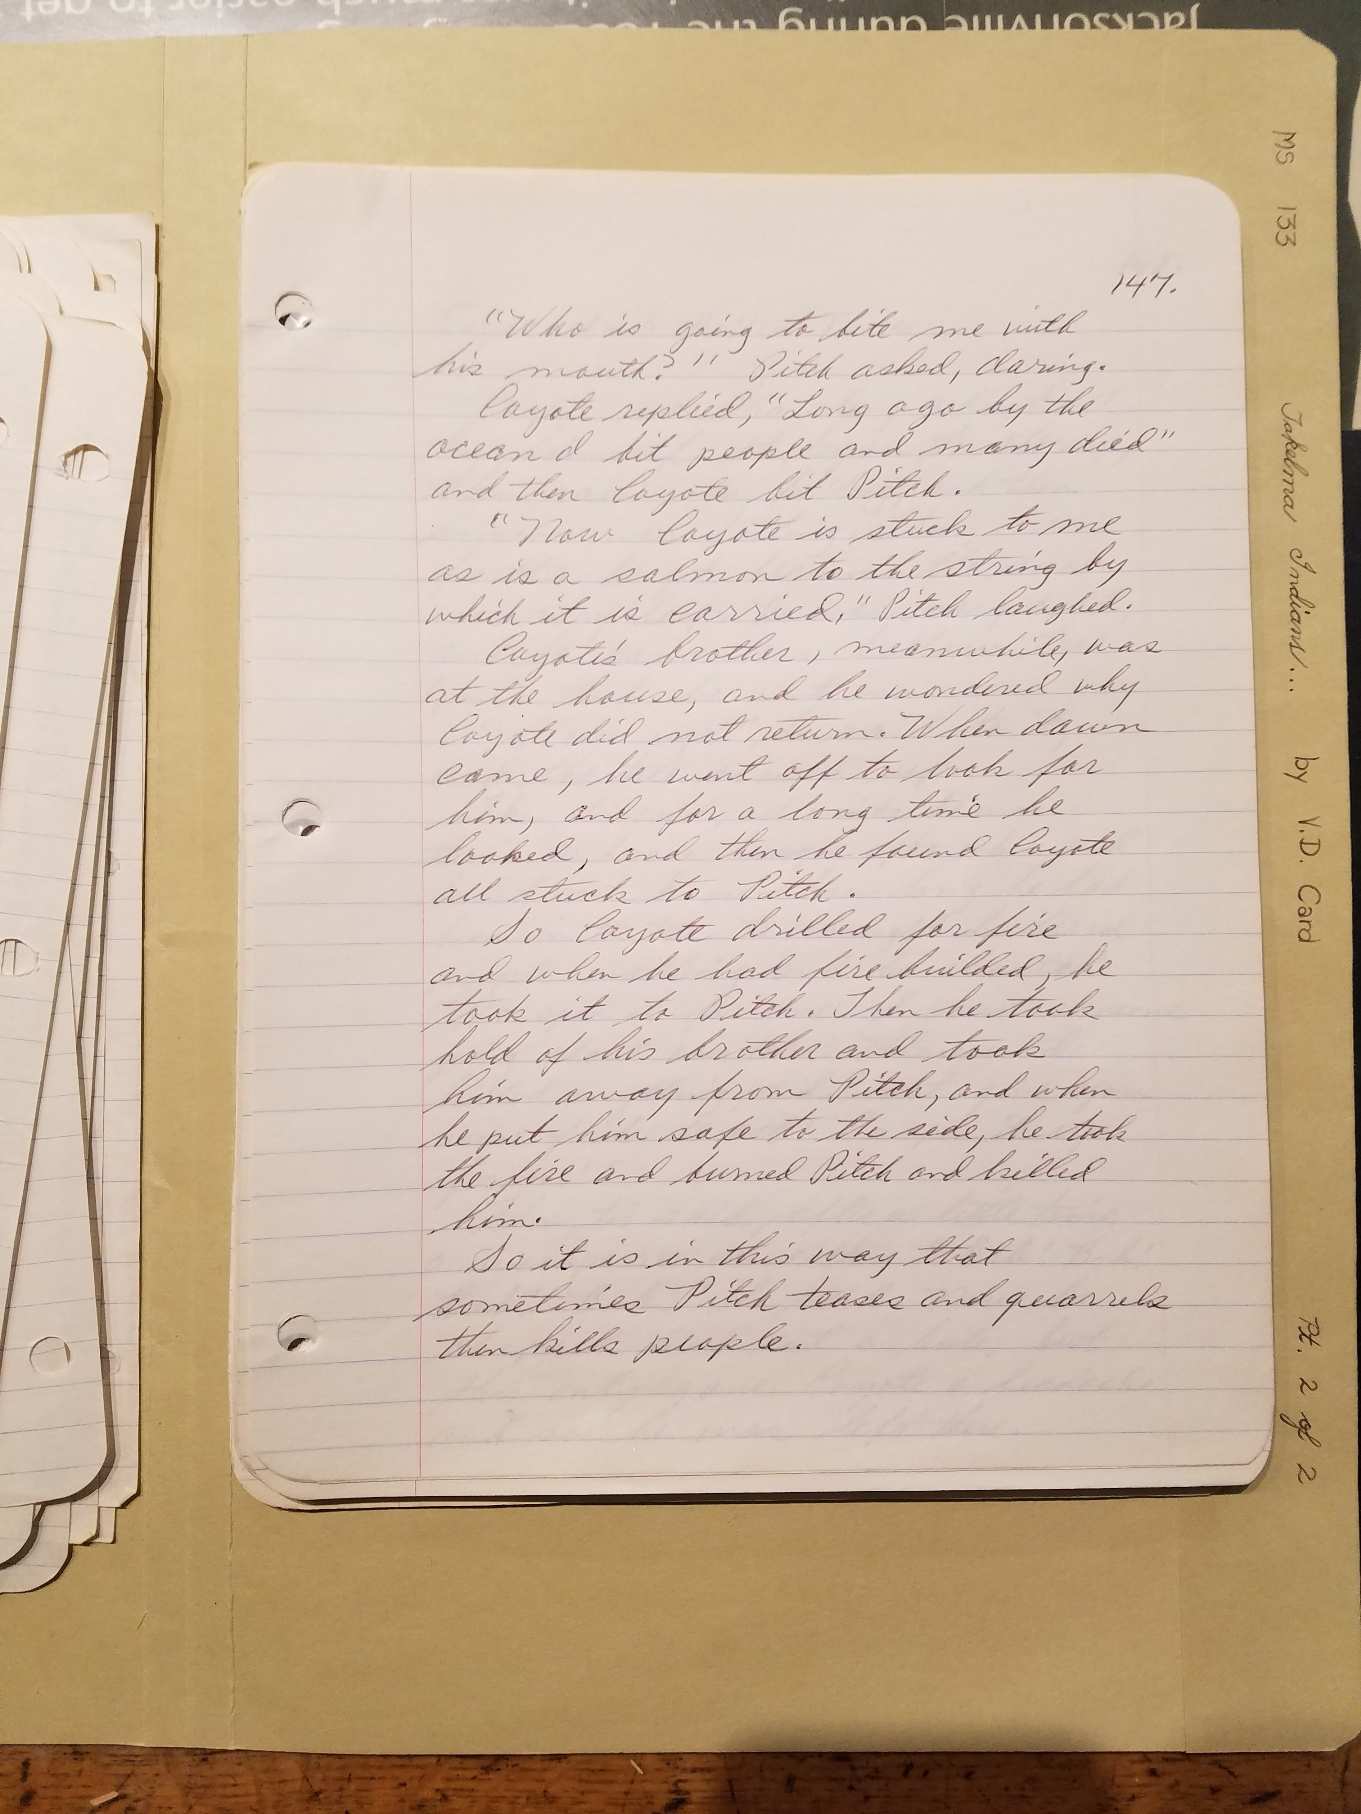 147.
"Who is going to bite me with
his mouth?" Pitch asked, daring.
Coyote replied, "Long ago by the
ocean I bit people and many died"
and then Coyote bit Pitch.
"Now Coyote is stuck to me
as is a salmon to the string by
which it is carried," Pitch laughed.
Coyote's brother, meanwhile, was
at the house, and he wondered why
Coyote did not return. When dawn
came, he went off to look for
him, and for a long time he
looked, and then he found Coyote
all stuck to Pitch.
So Coyote drilled for fire
and when he had fire builded, he
took it to Pitch. Then he took
hold of his brother and took
him away from Pitch, and when
he put him safe to the side, he took
the fire and burned Pitch and killed
him.
So it is in this way that
sometimes Pitch teases and quarrels
then kills people.
MS 133 Takelma Indians... by V.D. Card Pt. 2 of 2
Jacksonville during the
easier to get